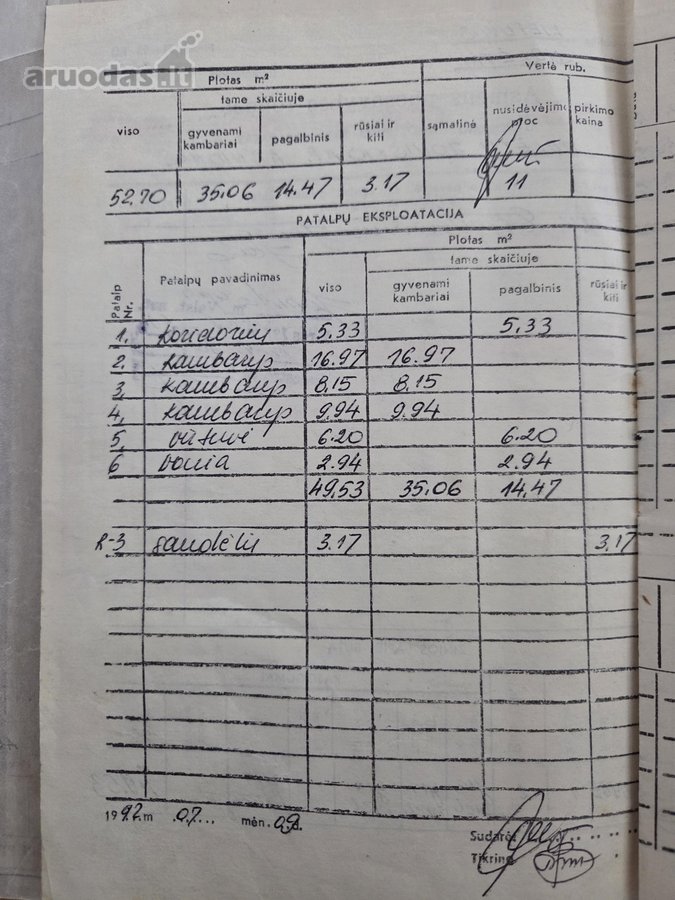 aruodas.lt
Plotas m² Vertė rub.
viso tame skaičiuje sąmatinė nusidėvėjimo proc pirkimo kaina
gyvenami kambariai pagalbinis rūsiai ir kiti
52.70 35.06 14.47 3.17 11
PATALPŲ EKSPLOATACIJA
Patalp Nr. Patalpų pavadinimas Plotas m²
viso tame skaičiuje
gyvenami kambariai pagalbinis rūsiai ir kiti
1. koridorius 5.33 5.33
2. kambarys 16.97 16.97
3. kambarys 8.15 8.15
4. kambarys 9.94 9.94
5. virtuvė 6.20 6.20
6 vonia 2.94 2.94
49.53 35.06 14.47
R-3 sandėlis 3.17 3.17
1992 m 07... mėn. 09 d.
Sudarė
Tikrino